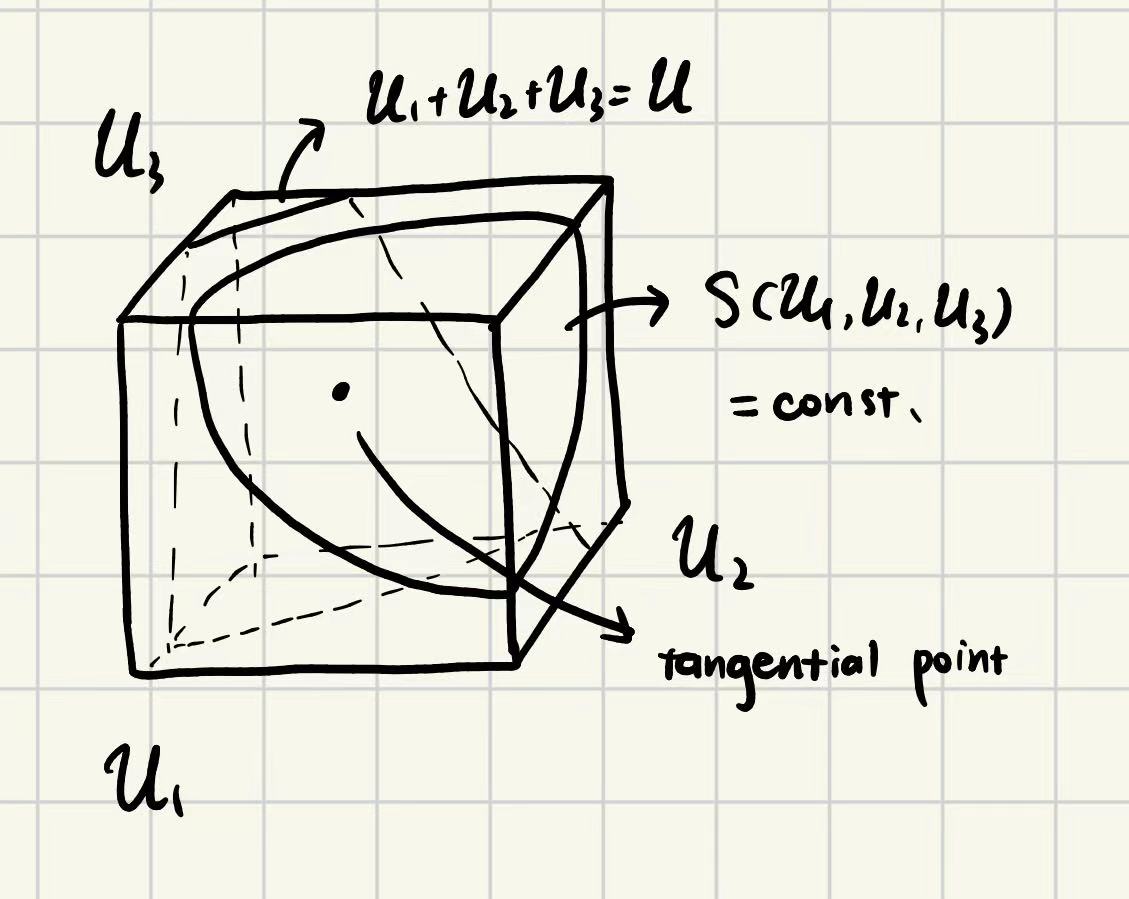 U₁+U₂+U₃=U
U₃
S(U₁,U₂,U₃)
=const.
U₂
tangential point
U₁